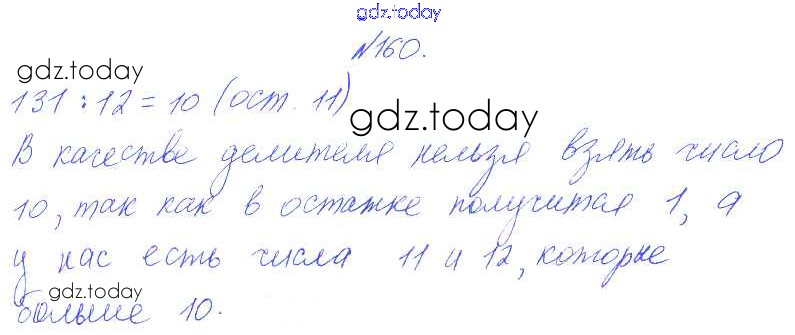 gdz.today
№160.
gdz.today
131 : 12 = 10 (ост. 11)
gdz.today
В качестве делителя нельзя взять число
10, так как в остатке получится 1, а
у нас есть числа 11 и 12, которые
gdz.today
больше 10.